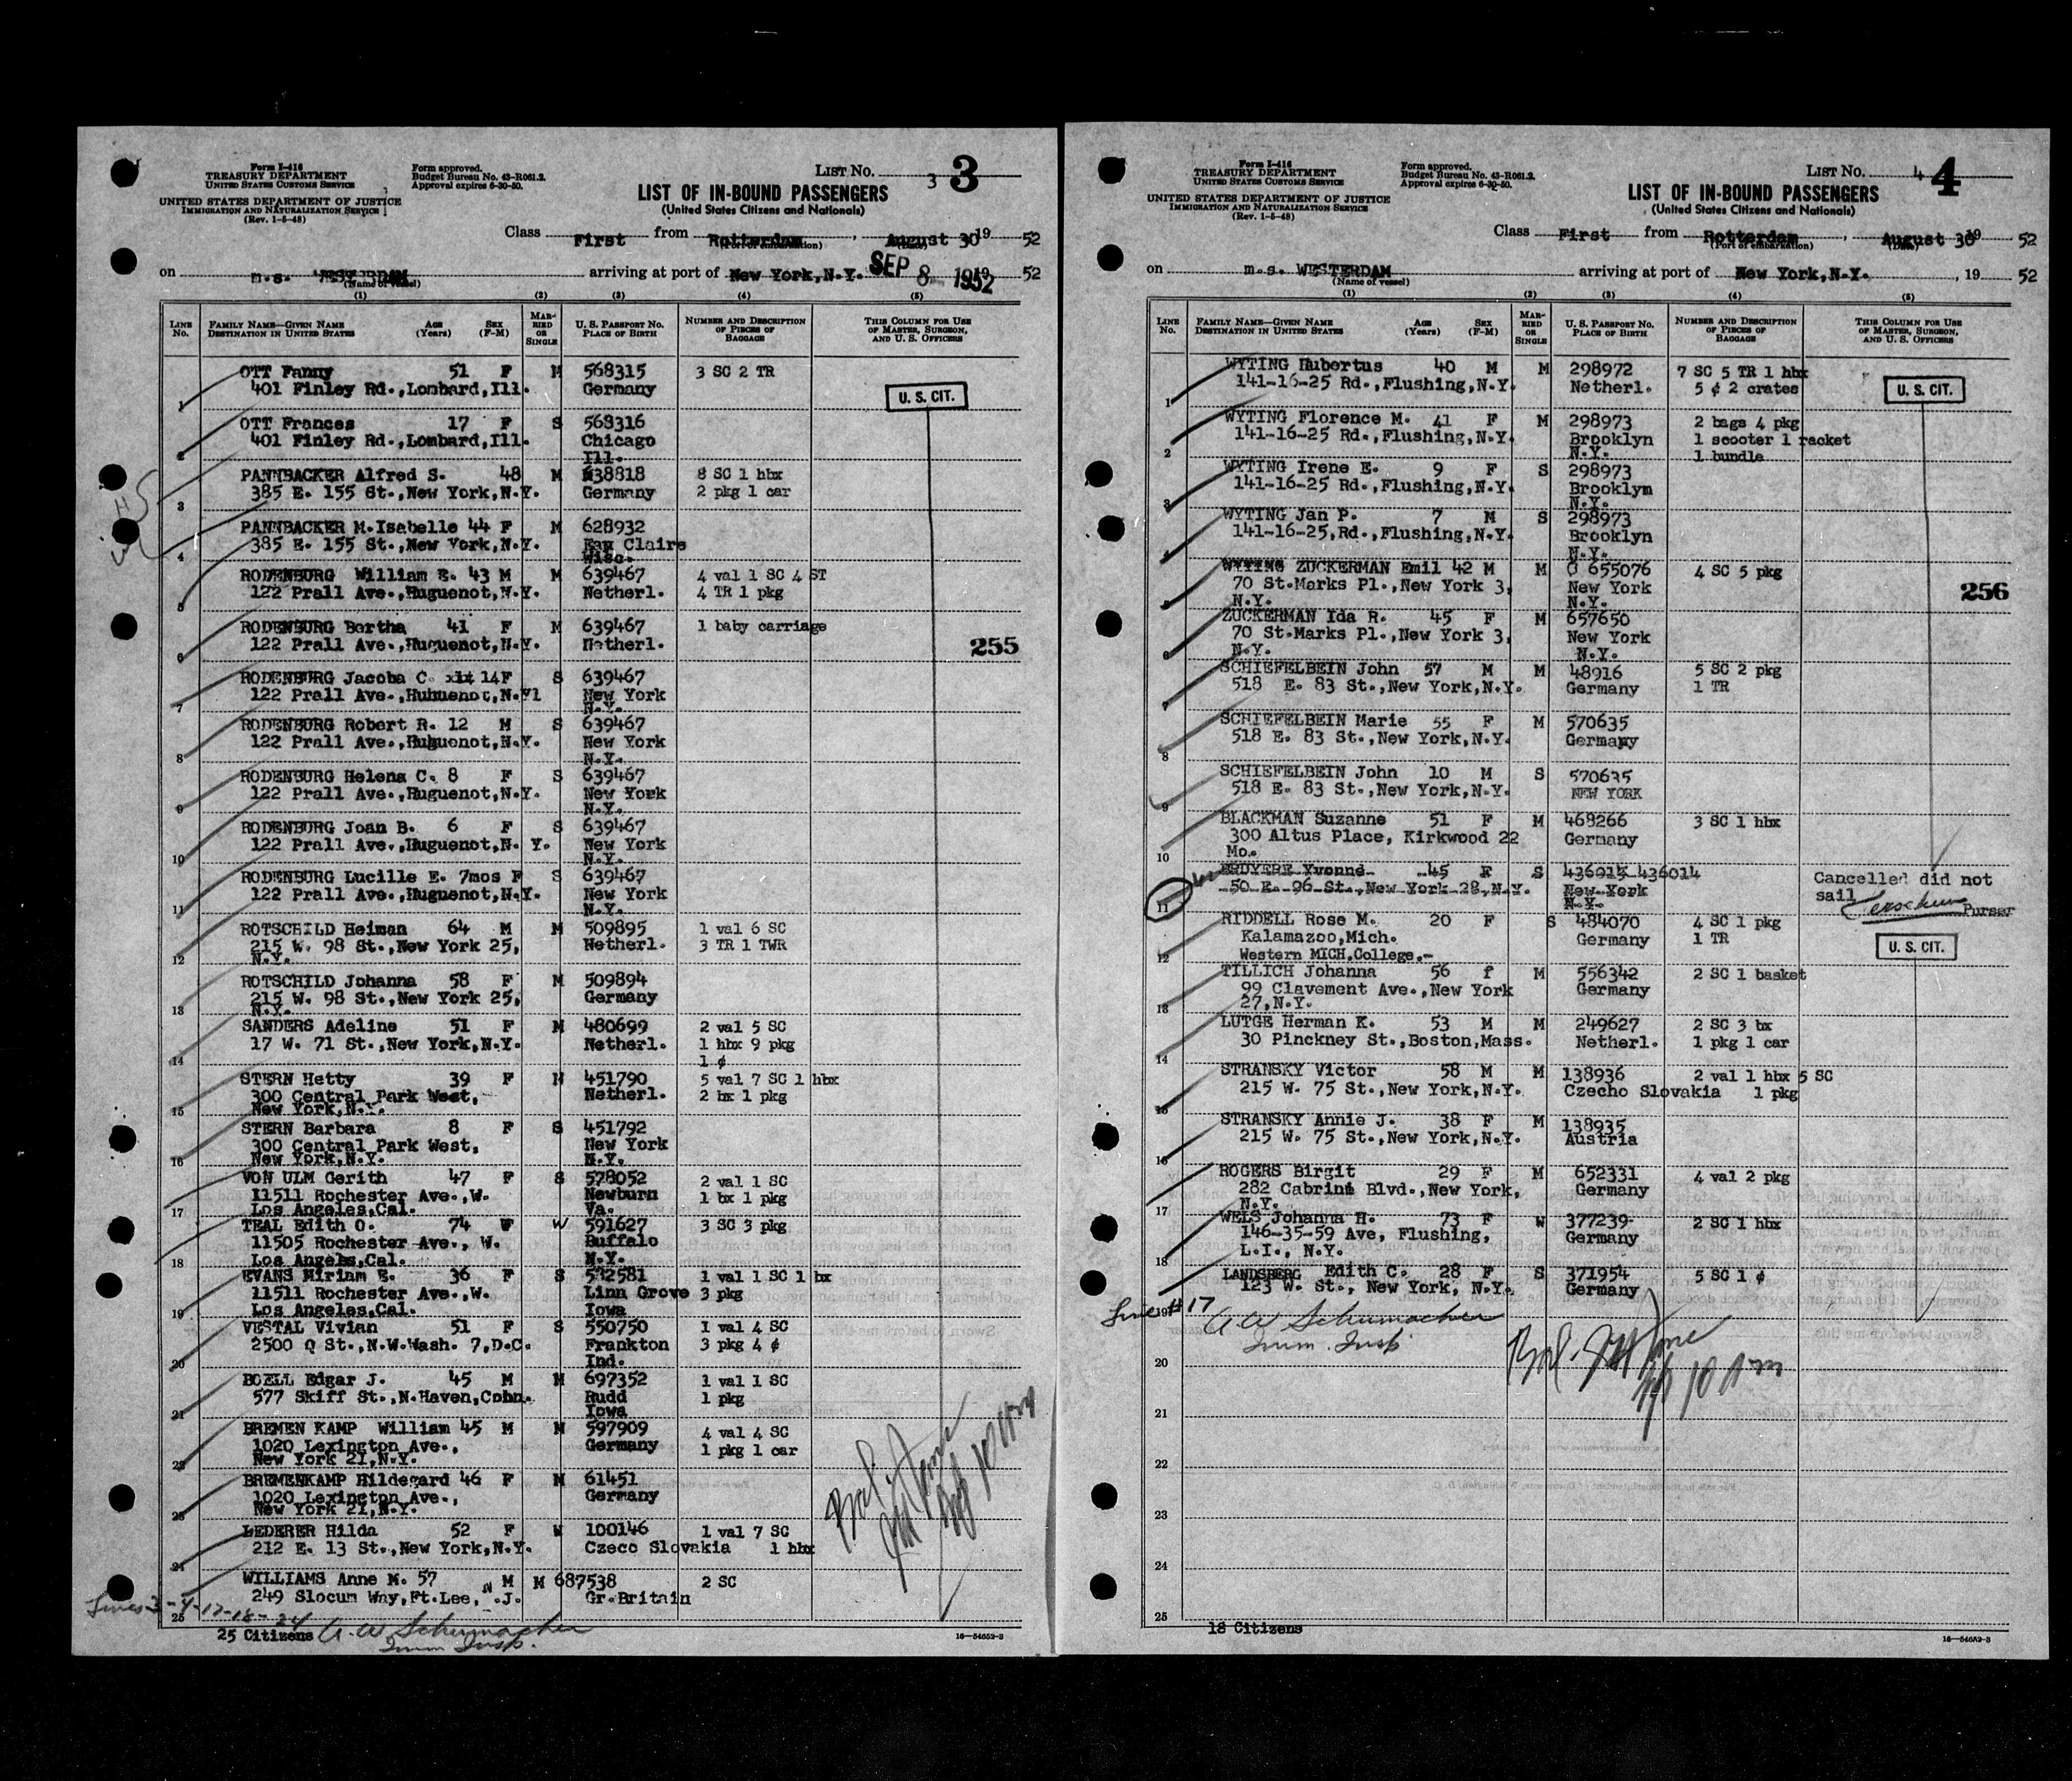 Form I-416
TREASURY DEPARTMENT
UNITED STATES CUSTOMS SERVICE
UNITED STATES DEPARTMENT OF JUSTICE
IMMIGRATION AND NATURALIZATION SERVICE
(Rev. 1-5-48)
Form approved.
Budget Bureau No. 43-R061.2.
Approval expires 6-30-50.
LIST No. 3 3
LIST OF IN-BOUND PASSENGERS
(United States Citizens and Nationals)
Class First from Rotterdam, August 30 19 52
(Port of embarkation) (Date)
on m.s. WESTERDAM arriving at port of New York,N.Y. SEP 8 1952 19 52
(Name of vessel)
(1) (2) (3) (4) (5)
LINE No. FAMILY NAME—GIVEN NAME DESTINATION IN UNITED STATES AGE (Years) SEX (F-M) MARRIED OR SINGLE U. S. PASSPORT NO. PLACE OF BIRTH NUMBER AND DESCRIPTION OF PIECES OF BAGGAGE THIS COLUMN FOR USE OF MASTER, SURGEON, AND U. S. OFFICERS
OTT Fanny 51 F M 568315 3 SC 2 TR
1 401 Finley Rd.,Lombard,Ill. Germany
U. S. CIT.
OTT Frances 17 F S 568316
2 401 Finley Rd.,Lombard,Ill. Chicago
Ill.
PANNBACKER Alfred S. 48 M 638818 8 SC 1 hbx
3 385 E. 155 St.,New York,N.Y. Germany 2 pkg 1 car
PANNBACKER M.Isabelle 44 F M 628932
4 385 E. 155 St.,New York,N.Y. Eau Claire
Wisc.
RODENBURG William E. 43 M M 639467 4 val 1 SC 4 ST
5 122 Prall Ave.,Huguenot,N.Y. Netherl. 4 TR 1 pkg
RODENBURG Bertha 41 F M 639467 1 baby carriage
6 122 Prall Ave.,Huguenot,N.Y. Netherl.
255
RODENBURG Jacoba C. 14 F S 639467
7 122 Prall Ave.,Huhuenot,N.Y New York
N.Y.
RODENBURG Robert R. 12 M S 639467
8 122 Prall Ave.,Huguenot,N.Y. New York
N.Y.
RODENBURG Helena C. 8 F S 639467
9 122 Prall Ave.,Huguenot,N.Y. New York
N.Y.
RODENBURG Joan B. 6 F S 639467
10 122 Prall Ave.,Huguenot,N. Y. New York
N.Y.
RODENBURG Lucille E. 7mos F S 639467
11 122 Prall Ave.,Huguenot,N.Y. New York
N.Y.
ROTSCHILD Heiman 64 M M 509895 1 val 6 SC
215 W. 98 St.,New York 25, Netherl. 3 TR 1 TWR
12 N.Y.
ROTSCHILD Johanna 58 F M 509894
215 W. 98 St.,New York 25, Germany
13 N.Y.
SANDERS Adeline 51 F M 480699 2 val 5 SC
17 W. 71 St.,New York,N.Y. Netherl. 1 hbx 9 pkg
14 1 ¢
STERN Hetty 39 F M 451790 5 val 7 SC 1 hbx
300 Central Park West, Netherl. 2 bx 1 pkg
15 New York,N.Y.
STERN Barbara 8 F S 451792
300 Central Park West, New York
16 New York,N.Y. N.Y.
VON ULM Gerith 47 F S 578052 2 val 1 SC
11511 Rochester Ave.,W. Newburn 1 bx 1 pkg
17 Los Angeles,Cal. Va.
TEAL Edith O. 74 F W 591627 3 SC 3 pkg
11505 Rochester Ave., W. Buffalo
18 Los Angeles,Cal. N.Y.
EVANS Miriam E. 36 F S 532581 1 val 1 SC 1 bx
11511 Rochester Ave.,W. Linn Grove 3 pkg
19 Los Angeles,Cal. Iowa
VESTAL Vivian 51 F S 550750 1 val 4 SC
2500 Q St.,N.W.Wash. 7,D.C. Frankton 3 pkg 4 ¢
20 Ind.
BOELL Edgar J. 45 M M 697352 1 val 1 SC
577 Skiff St.,N.Haven,Conn. Rudd 1 pkg
21 Iowa
BREMEN KAMP William 45 M M 597909 4 val 4 SC
1020 Lexington Ave., Germany 1 pkg 1 car
22 New York 21,N.Y.
BREMENKAMP Hildegard 46 F M 61451
1020 Lexington Ave., Germany
23 New York 21,N.Y.
LEDERER Hilda 52 F W 100146 1 val 7 SC
24 212 E. 13 St.,New York,N.Y. Czeco Slovakia 1 hbx
WILLIAMS Anne M. 57 M M 687538 2 SC
249 Slocum Way,Ft.Lee, N.J. Gr.Britain
25
Lines 3-4-17-18-24
25 Citizens A. W Schumacher
Imm. Insp.
16—54652-3
Form I-416
TREASURY DEPARTMENT
UNITED STATES CUSTOMS SERVICE
UNITED STATES DEPARTMENT OF JUSTICE
IMMIGRATION AND NATURALIZATION SERVICE
(Rev. 1-5-48)
Form approved.
Budget Bureau No. 43-R061.2.
Approval expires 6-30-50.
LIST No. 4 4
LIST OF IN-BOUND PASSENGERS
(United States Citizens and Nationals)
Class First from Rotterdam, August 30 19 52
(Port of embarkation) (Date)
on m.s. WESTERDAM arriving at port of New York,N.Y., 19 52
(Name of vessel)
(1) (2) (3) (4) (5)
LINE No. FAMILY NAME—GIVEN NAME DESTINATION IN UNITED STATES AGE (Years) SEX (F-M) MARRIED OR SINGLE U. S. PASSPORT NO. PLACE OF BIRTH NUMBER AND DESCRIPTION OF PIECES OF BAGGAGE THIS COLUMN FOR USE OF MASTER, SURGEON, AND U. S. OFFICERS
WYTING Hubertus 40 M M 298972 7 SC 5 TR 1 hbx
1 141-16-25 Rd.,Flushing,N.Y. Netherl. 5 ¢ 2 crates
U. S. CIT.
WYTING Florence M. 41 F M 298973 2 bags 4 pkg
2 141-16-25 Rd.,Flushing,N.Y. Brooklyn 1 scooter 1 racket
N.Y. 1 bundle
WYTING Irene E. 9 F S 298973
3 141-16-25 Rd.,Flushing,N.Y. Brooklyn
N.Y.
WYTING Jan P. 7 M S 298973
4 141-16-25,Rd.,Flushing,N.Y. Brooklyn
N.Y.
WYTING ZUCKERMAN Emil 42 M M 655076 4 SC 5 pkg
70 St.Marks Pl.,New York 3, New York
5 N.Y. N.Y.
256
ZUCKERMAN Ida R. 45 F M 657650
70 St.Marks Pl.,New York 3, New York
6 N.Y. N.Y.
SCHIEFELBEIN John 57 M M 48916 5 SC 2 pkg
7 518 E. 83 St.,New York,N.Y. Germany 1 TR
SCHIEFELBEIN Marie 55 F M 570635
8 518 E. 83 St.,New York,N.Y. Germany
SCHIEFELBEIN John 10 M S 570635
9 518 E. 83 St.,New York,N.Y. NEW YORK
BLACKMAN Suzanne 51 F M 468266 3 SC 1 hbx
300 Altus Place, Kirkwood 22 Germany
10 Mo.
BRUYERE Yvonne 45 F S 436015 436014 Cancelled did not
50 E. 96 St.,New York 28,N.Y. New York sail
11 N.Y. Purser
RIDDELL Rose M. 20 F S 484070 4 SC 1 pkg
Kalamazoo,Mich. Germany 1 TR
U. S. CIT.
12 Western MICH.College.-
TILLICH Johanna 56 f M 556342 2 SC 1 basket
99 Clavement Ave.,New York Germany
13 27,N.Y.
LUTGE Herman K. 53 M M 249627 2 SC 3 bx
14 30 Pinckney St.,Boston,Mass. Netherl. 1 pkg 1 car
STRANSKY Victor 58 M M 138936 2 val 1 hbx 5 SC
15 215 W. 75 St.,New York,N.Y. Czecho Slovakia 1 pkg
STRANSKY Annie J. 38 F M 138935
16 215 W. 75 St.,New York,N.Y. Austria
ROGERS Birgit 29 F M 652331 4 val 2 pkg
282 Cabrini Blvd.,New York, Germany
17 N.Y.
WELS Johanna H. 73 F W 377239 2 SC 1 hbx
146-35-59 Ave, Flushing, Germany
18 L.I., N.Y.
LANDSBERG Edith C. 28 F S 371954 5 SC 1 ¢
123 W. St., New York, N.Y. Germany
19
Line #17
A W Schumacher
Imm. Insp
20
21
22
23
24
25
18 Citizens
16—54652-3